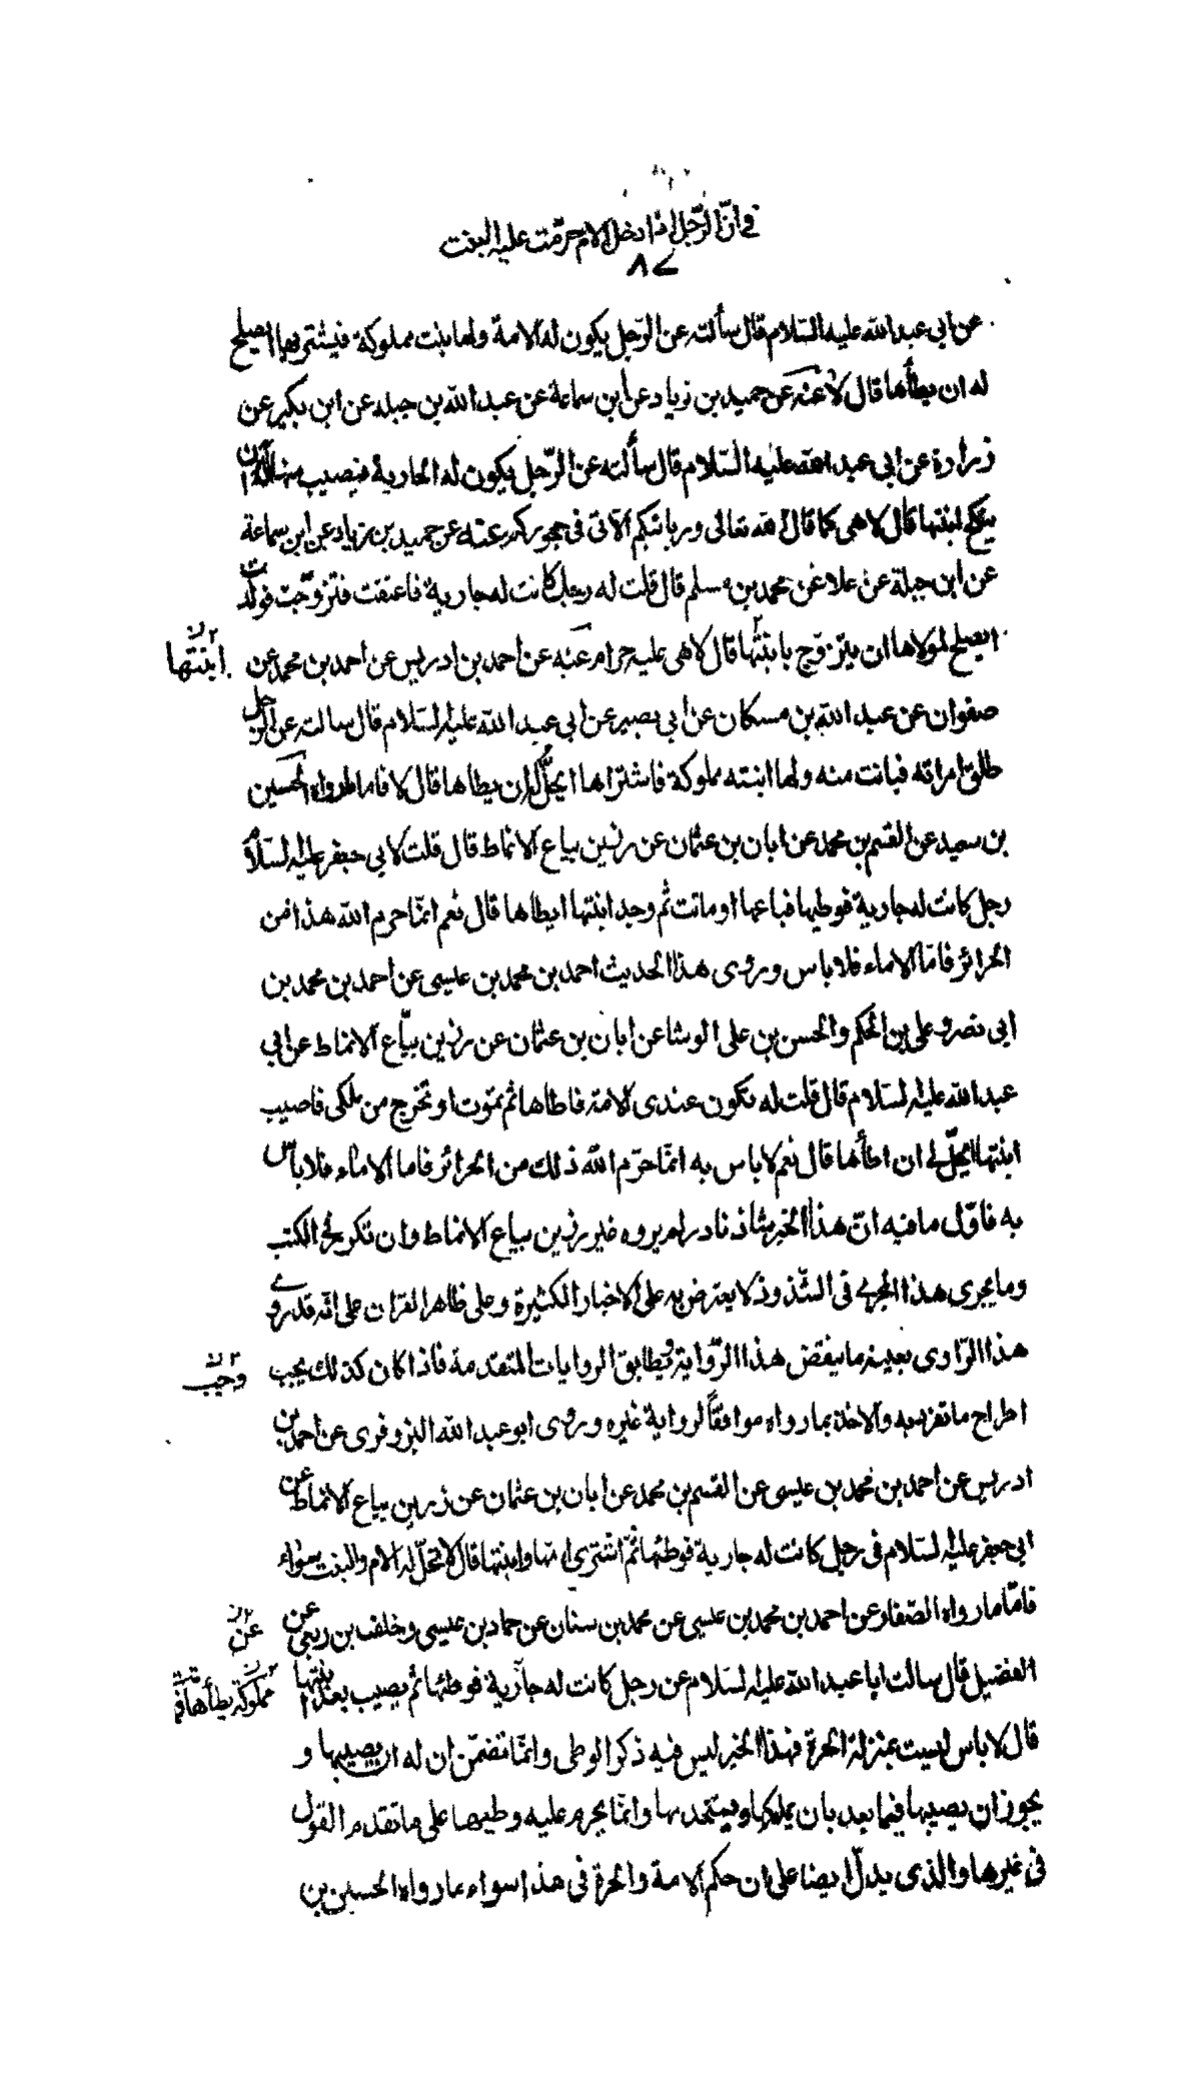 في انّ الرّجل اذا دخل الام حرّمت عليه البنت
٨٧
عن ابى عبد الله عليه السّلام قال سألته عن الرّجل يكون له الامة ولها بنت مملوكة فيشتريها ايصلح
له ان يطأها قال لا عنه عن حميد بن زياد عن ابن سماعة عن عبد الله بن جبله عن ابن بكير عن
زرارة عن ابى عبد الله عليه السّلام قال سألته عن الرّجل يكون له الجارية فيصيب منها اله ان
ينكح ابنتها قال لا هى كما قال الله تعالى وربائبكم الّاتى فى حجوركم عنه عن حميد بن زياد عن ابن سماعة
عن ابن جبلة عن علا عن محمد بن مسلم قال قلت له رجل كانت له جارية فاعتقت فتزوّجت فولدت
ايصلح لمولاها ان يتزوّج بابنتها قال لا هى عليه حرام عنه عن احمد بن ادريس عن احمد بن محمد عن
ابنتها
صفوان عن عبد الله بن مسكان عن ابي بصير عن ابي عبد الله عليه السّلام قال سالته عن الرجل
طلق امراته فبانت منه ولها ابنته مملوكة فاشتراها ايحلّ له ان يطاها قال لا فاما ما رواه الحسين
بن سعيد عن القسم بن محمد عن ابان بن عثمان عن رزين بياع الانماط قال قلت لابي جعفر عليه السّلام
رجل كانت له جارية فوطيها فباعها او ماتت ثم وجد ابنتها ايطاها قال نعم انّما حرم الله هذا من
الحرائر فامّا الاماء فلا باس وروى هذا الحديث احمد بن محمد بن عيسى عن احمد بن محمد بن
ابي نصر وعلى بن الحكم والحسن بن على الوشا عن ابان بن عثمان عن رزين بيّاع الانماط عن ابي
عبد الله عليه السّلام قال قلت له تكون عندى الامة فاطاها ثم تموت او تخرج من ملكى فاصيب
ابنتها ايحلّ لى ان اطأها قال نعم لا باس به انّما حرّم الله ذلك من الحرائر فاما الاماء فلا باس
به فاوّل ما فيه انّ هذا الخبر شاذ نادر لم يروه غير رزين بياع الانماط وان تكرر فى الكتب
وما يجرى هذا المجرى فى الشّذوذ لا يعترض به على الاخبار الكثيرة وعلى ظاهر القران على انّه قد روى
هذا الرّاوى بعينه ما ينقض هذا الرّواية ويطابق الروايات المتقدمة فاذا كان كذلك يجب
وجب
اطراح ما تفرد به والاخذ بما رواه موافقاً لرواية غيره وروى ابو عبد الله البزوفرى عن احمد بن
ادريس عن احمد بن محمد بن عيسى عن القسم بن محمد عن ابان بن عثمان عن زرين بياع الانماط عن
ابى جعفر عليه السّلام فى رجل كانت له جارية فوطئها ثمّ اشترى امّها وابنتها قال لا تحلّ له الام والبنت سواء
فامّا ما رواه الصّفار عن احمد بن محمد بن عيسى عن محمد بن سنان عن حماد بن عيسى وخلف بن ربعى عن
عن
الفضيل قال سالت ابا عبد الله عليه السّلام عن رجل كانت له جارية فوطئها ثم يصيب بعد ابنتها
مملوكة يطأها
قال لا باس ليست بمنزلة الحرة فهذا الخبر ليس فيه ذكر الوطى وانّما تضمّن ان له ان يصيبها و
يجوز ان يصيبها فيما بعد بان يملكها ويستخدمها وانّما يحرم عليه وطيها على ما تقدم القول
فى غيرها والذى يدلّ ايضا على ان حكم الامة والحرة فى هذا سواء ما رواه الحسين بن